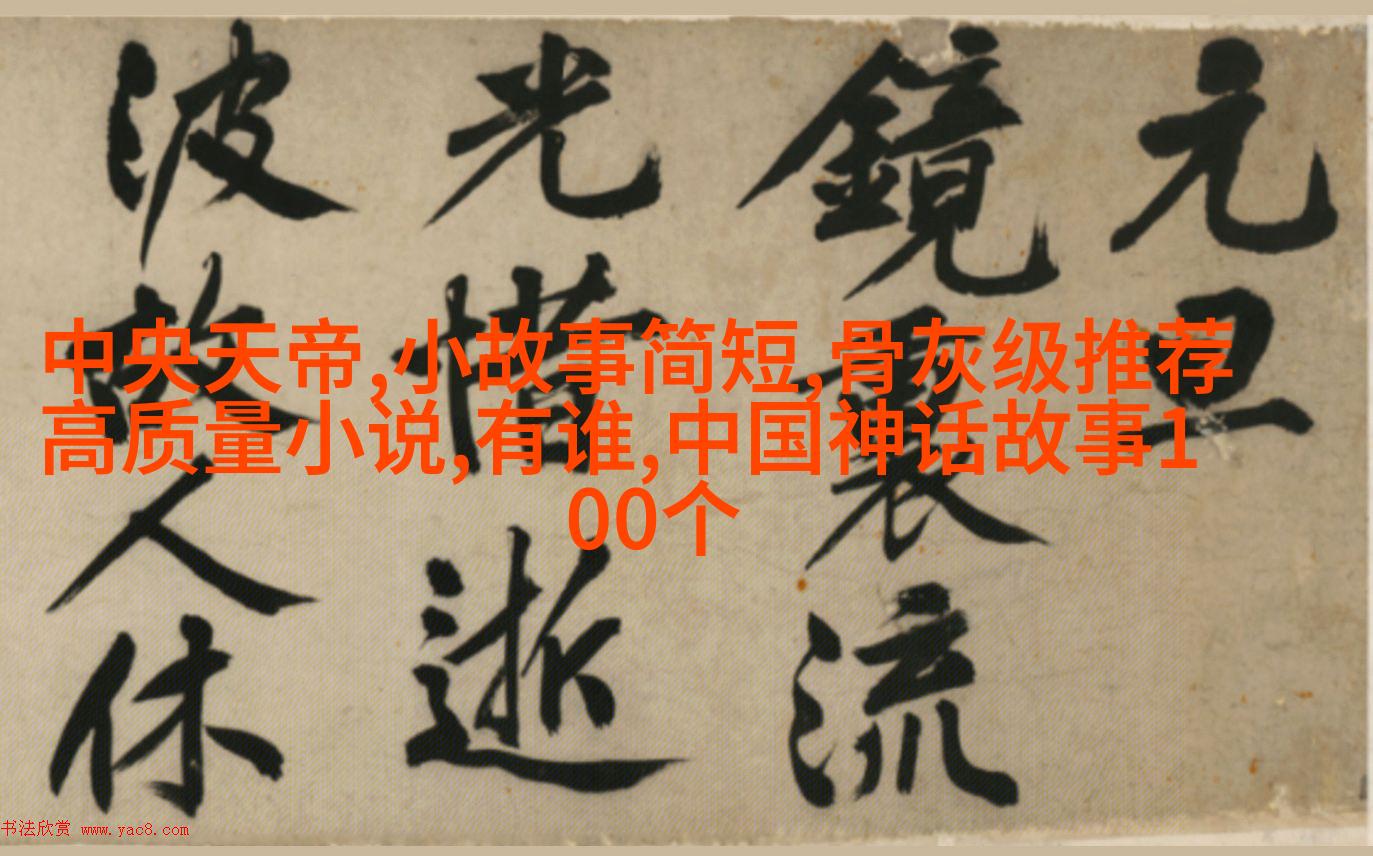 元旦
鏡裏流
光惜逝
波故人休
中央天帝,小故事简短,骨灰级推荐
高质量小说,有谁,中国神话故事1
00个
书法欣赏 www.yac8.com